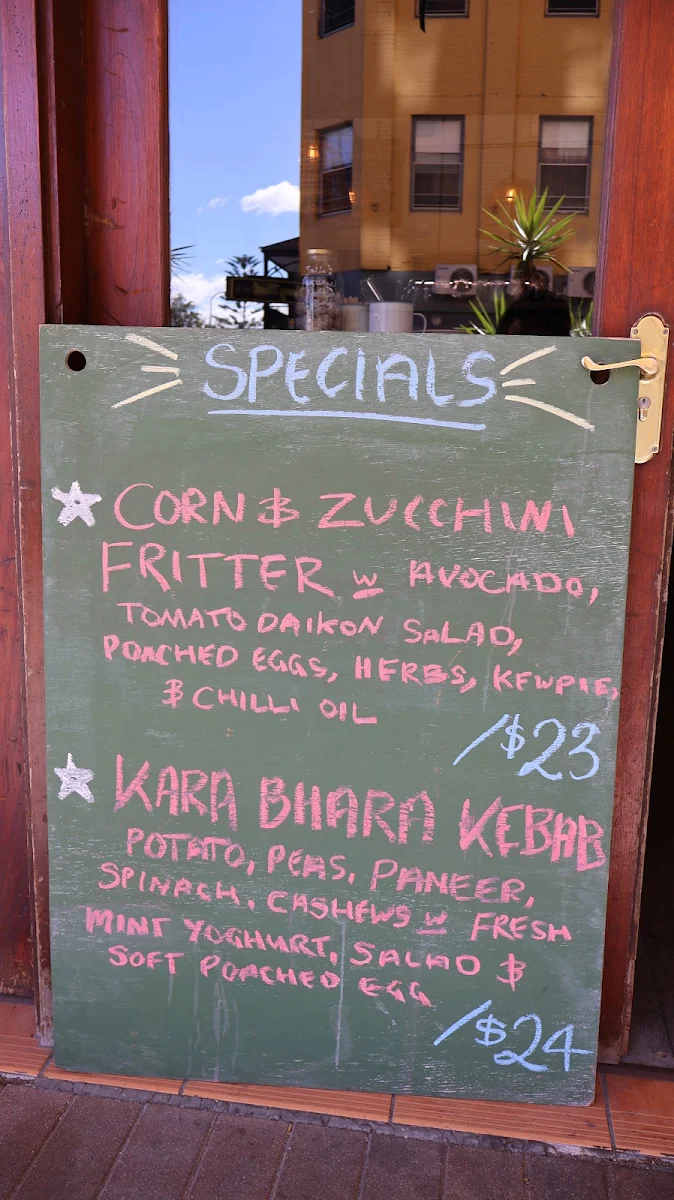 SPECIALS
CORN & ZUCCHINI
FRITTER w AVOCADO,
TOMATO DAIKON SALAD,
POACHED EGGS, HERBS, KEWPIE,
& CHILLI OIL
/$23
KARA BHARA KEBAB
POTATO, PEAS, PANEER,
SPINACH, CASHEWS w FRESH
MINT YOGHURT, SALAD &
SOFT POACHED EGG
/$24